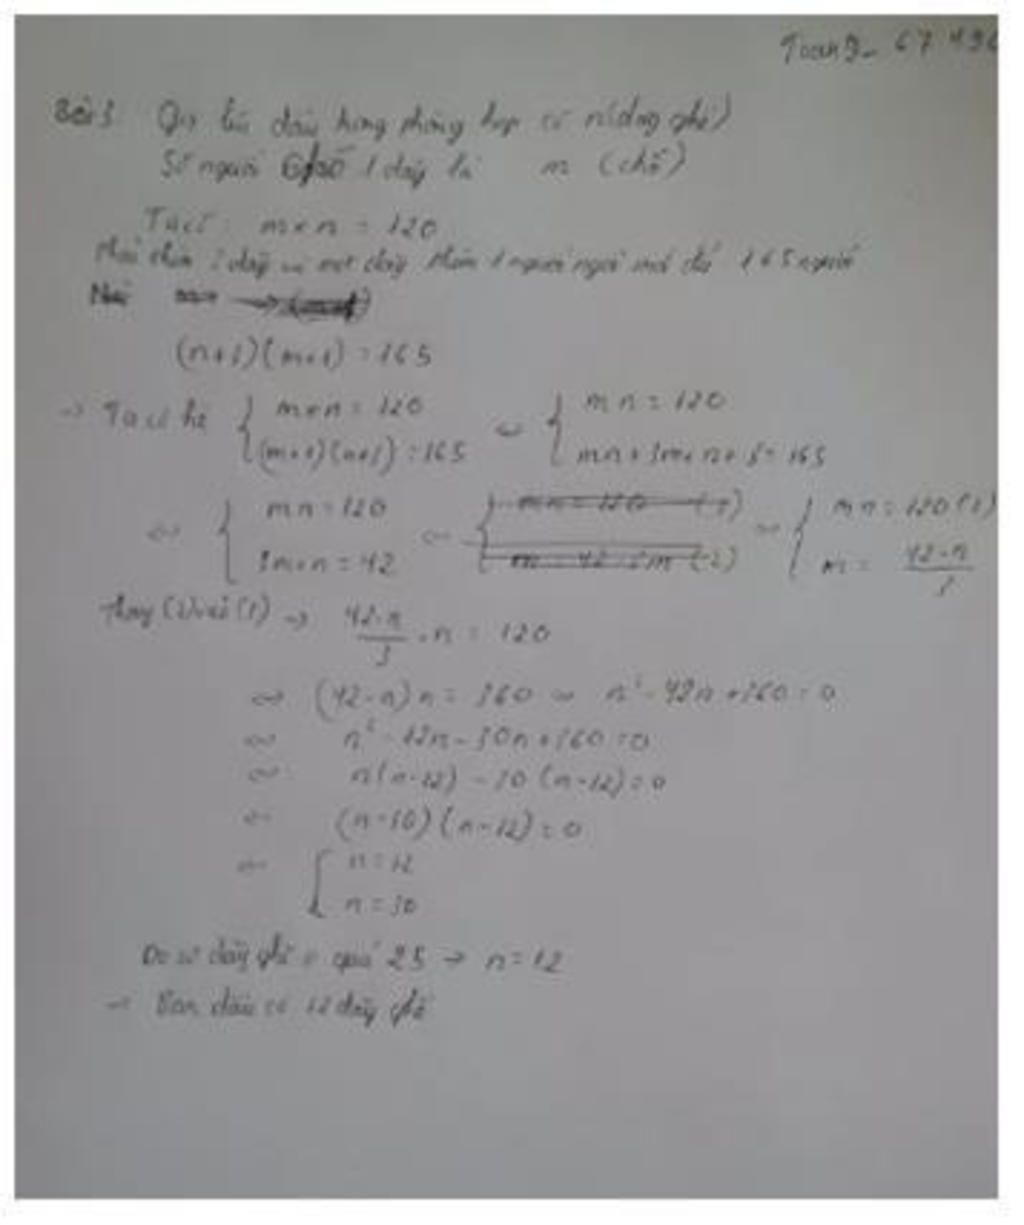 Toan 9 - 67 496
Bài 3 Gọi lúc đầu trong phòng họp có n (dãy ghế)
Số người 1 dãy là m (chỗ)
Ta có: m×n = 120
Phải thêm 3 dãy và mỗi dãy thêm 1 người ngồi mới đủ 165 người
(n+3)(m+1) = 165
→ Ta có hệ { m×n = 120 ⇔ { mn = 120
(m+1)(n+3) = 165 mn + 3m + n + 3 = 165
⇔ { mn = 120 ⇔ { mn = 120 (1) ⇔ { mn = 120 (1)
3m+n = 42 (2) m = 42-n / 3
Thay (2) vào (1) → 42-n / 3 . n = 120
⇔ (42-n)n = 360 ⇔ n² - 42n + 360 = 0
⇔ n² - 12n - 30n + 360 = 0
⇔ n(n-12) - 30(n-12) = 0
⇔ (n-30)(n-12) = 0
⇔ [ n = 12
n = 30
Do số dãy ghế o quá 25 → n = 12
→ Ban đầu có 12 dãy ghế